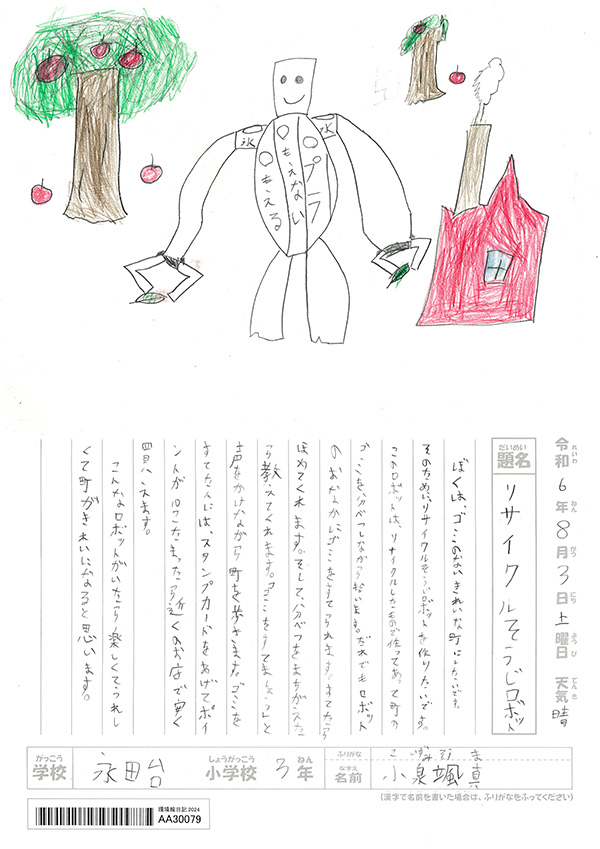 プラ
もえない
もえる
氷
氷
令和6年8月3日土曜日 天気晴
れいわ ねん がつ にち ようび てんき
だいめい
題名
リサイクルそうじロボット
ぼくは、ゴミのないきれいな町にしたいです。
そのためにリサイクルそうじロボットを作りたいです。
このロボットは、リサイクルしたもので作ってあって町の
ゴミを分べつしながら拾います。だれでもロボット
のおなかにゴミをすてられます。すてたら
ほめてくれます。そして、分べつをまちがえた
ら教えてくれます。「ゴミをすてましょう」と
声をかけながら町を歩きます。ゴミを
すてた人には、スタンプカードをあげてポイ
ントが10こたまったら近くのお店で安く
買えます。
こんなロボットがいたら楽しくてうれし
くて町がきれいになると思います。
がっこう
学校
永田台
しょうがっこう
小学校
3年
ねん
ふりがな
こいずみそうま
なまえ
名前
小泉颯真
(漢字で名前を書いた場合は、ふりがなをふってください)
環境絵日記2024
AA30079